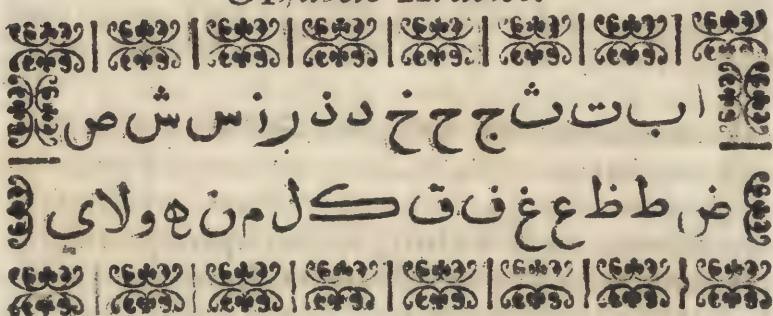 ا ب ت ث ج ح خ د ذ ر ز س ش ص
ض ط ظ ع غ ف ق ك ل م ن ه و لا ي